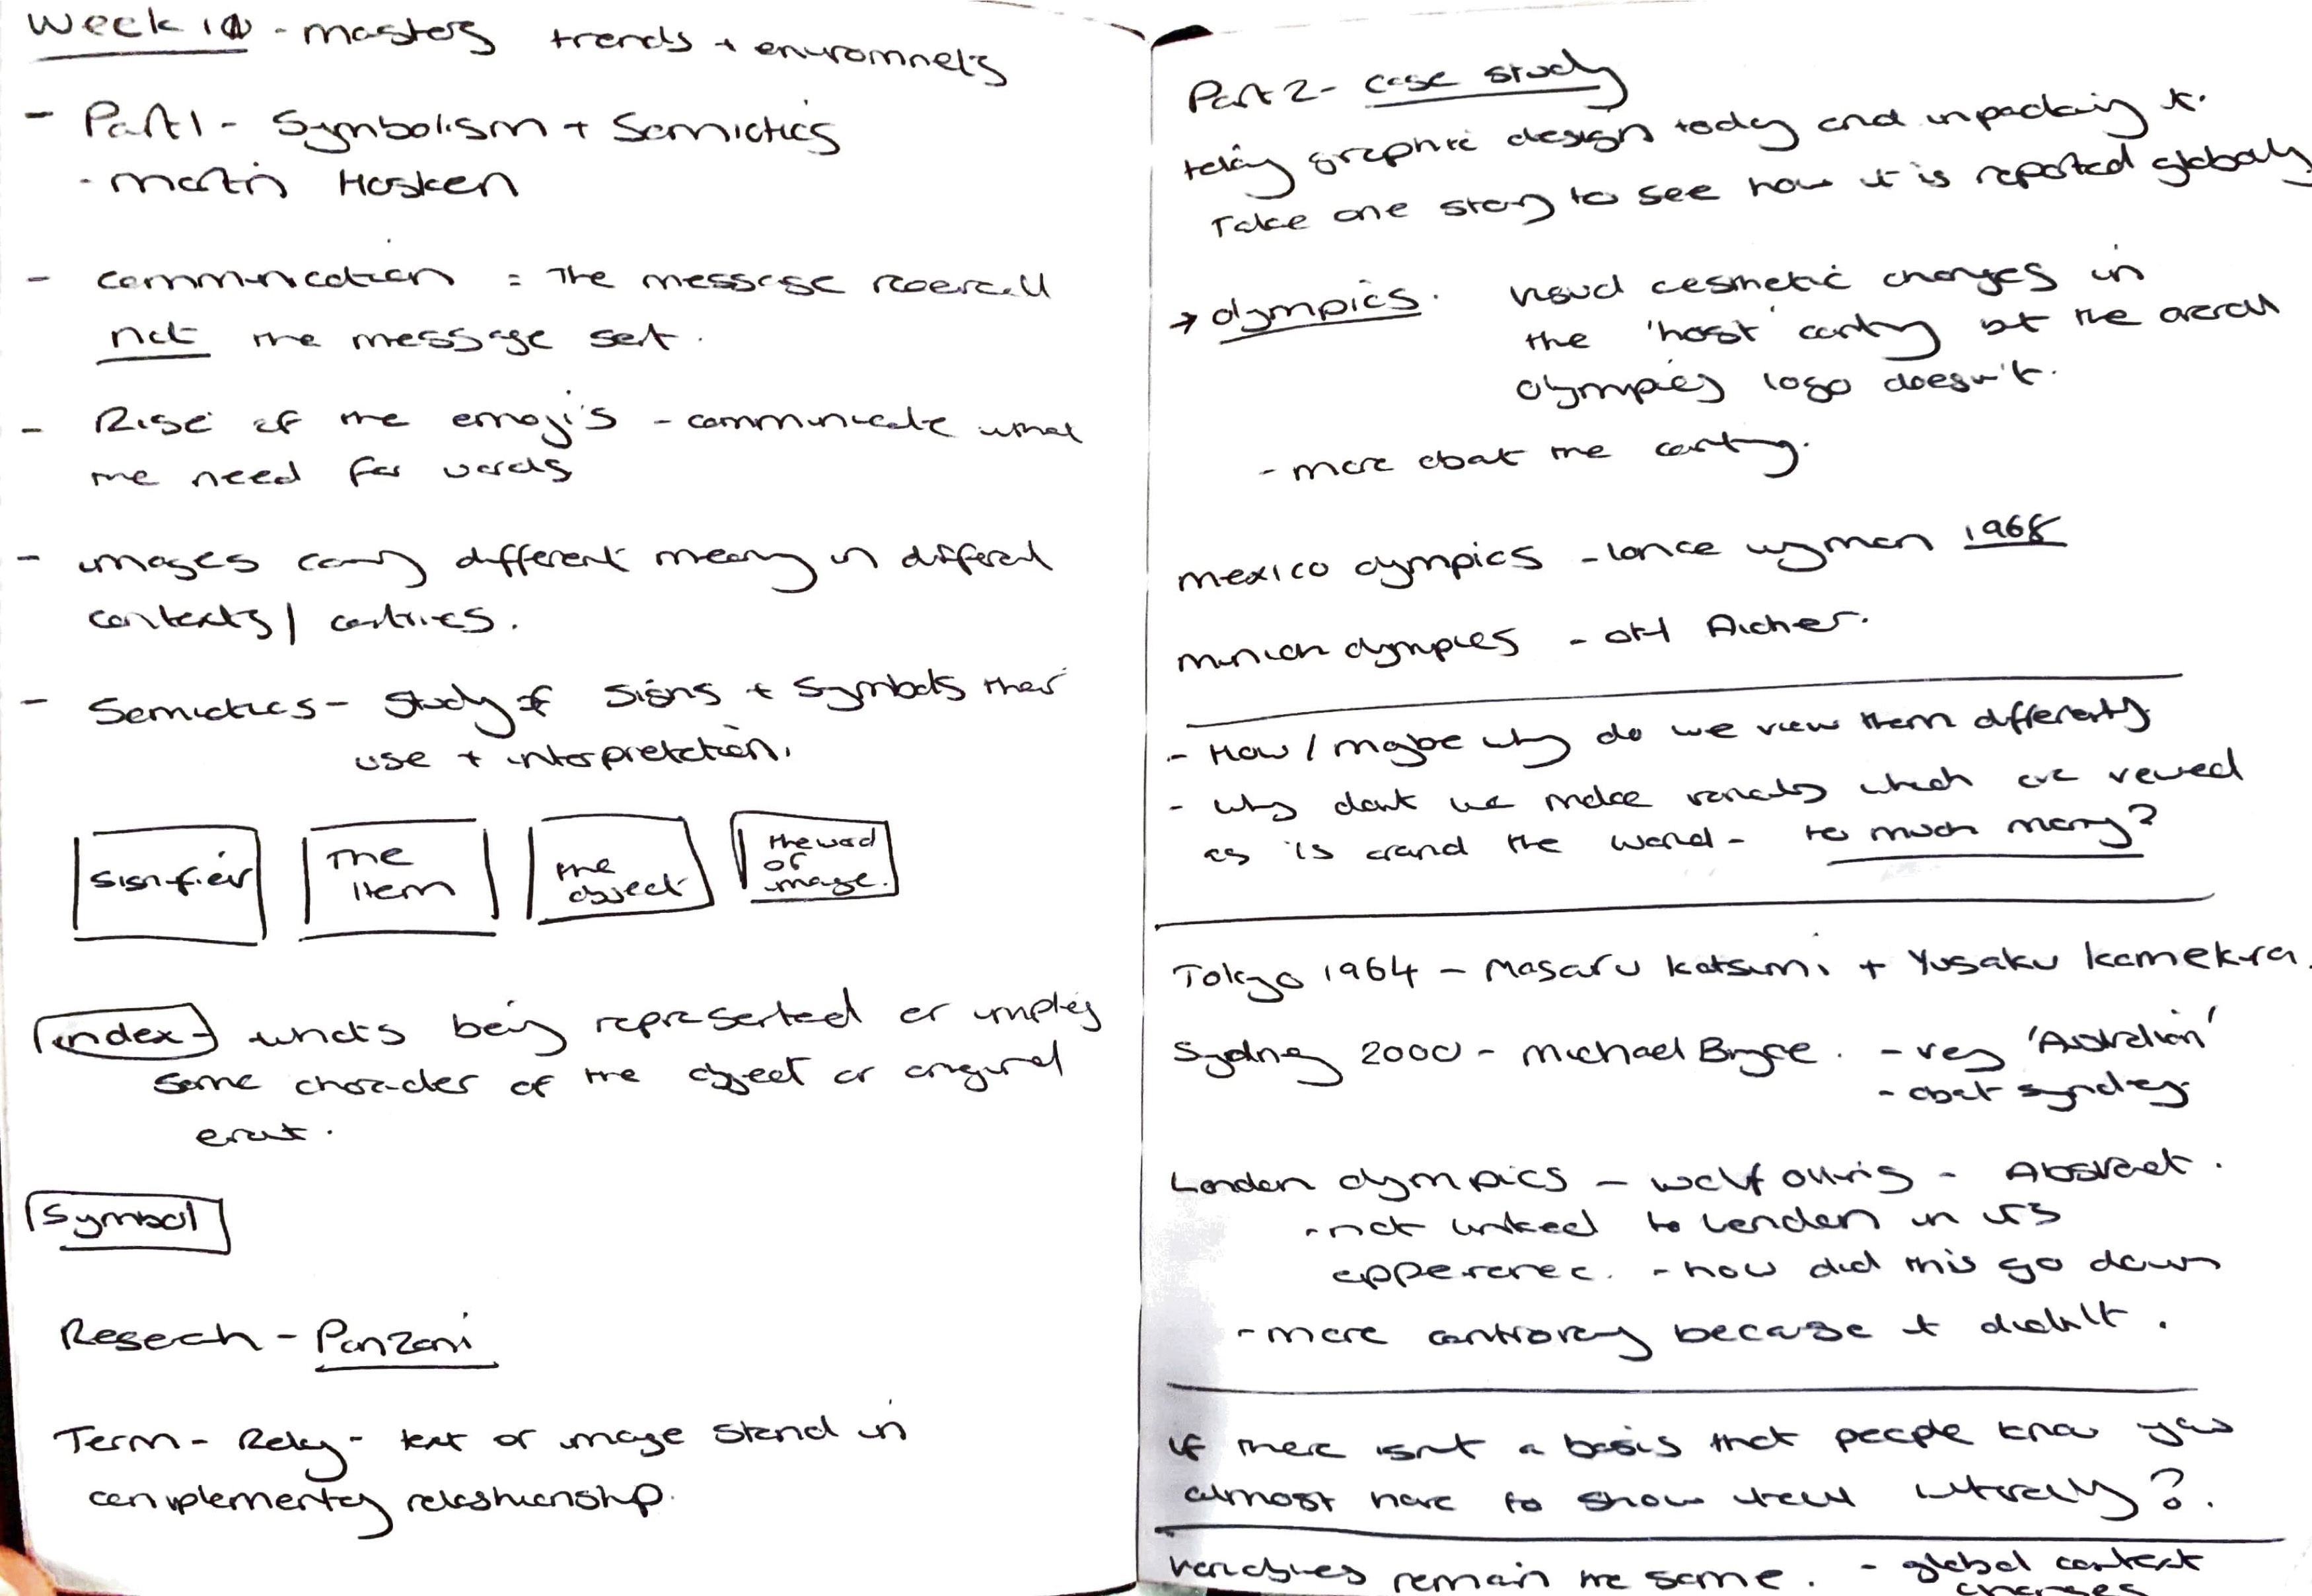 Week 10 - masters trends + enviromnets
- Part 1 - Symbolism + Semiotics
- Martin Hosken
- communication = The message received
not the message sent.
- Rise of the emoji's - communicate what
the need for words
- images carry different meaning in different
contexts / contries.
- Semiotics - study of signs + symbols their
use + interpretation.
signifier
The
item
the
object
the word
or
image.
index - whats being represented or implies
some character of the object or original
event.
Symbol
Reseach - Panzani
Term - Relay - text or image stand in
complementary relashionship.
Part 2 - case study
taking graphic design today and unpacking it.
Take one story to see how it is reported globally
→ Olympics. visual cosmetic changes in
the 'host' contry but the overall
olympics logo doesn't.
- more about the contry.
mexico olympics - lance wyman 1968
munich olympics - otl Aicher.
- How / maybe why do we view them differently
- why dont we make variables which are viewed
as is around the world - to much money?
Tokyo 1964 - Masaru Katsumi + Yusaku Kamekura.
Sydney 2000 - Michael Bryce. - very 'Australian'
- about syndey
London olympics - wolf ollins - Abstract.
- not linked to London in its
apperence. - how did this go down
- more controversy because it didn't.
if there isnt a basis that people know you
almost have to show literally?
Variables remain the same. - global context
changes